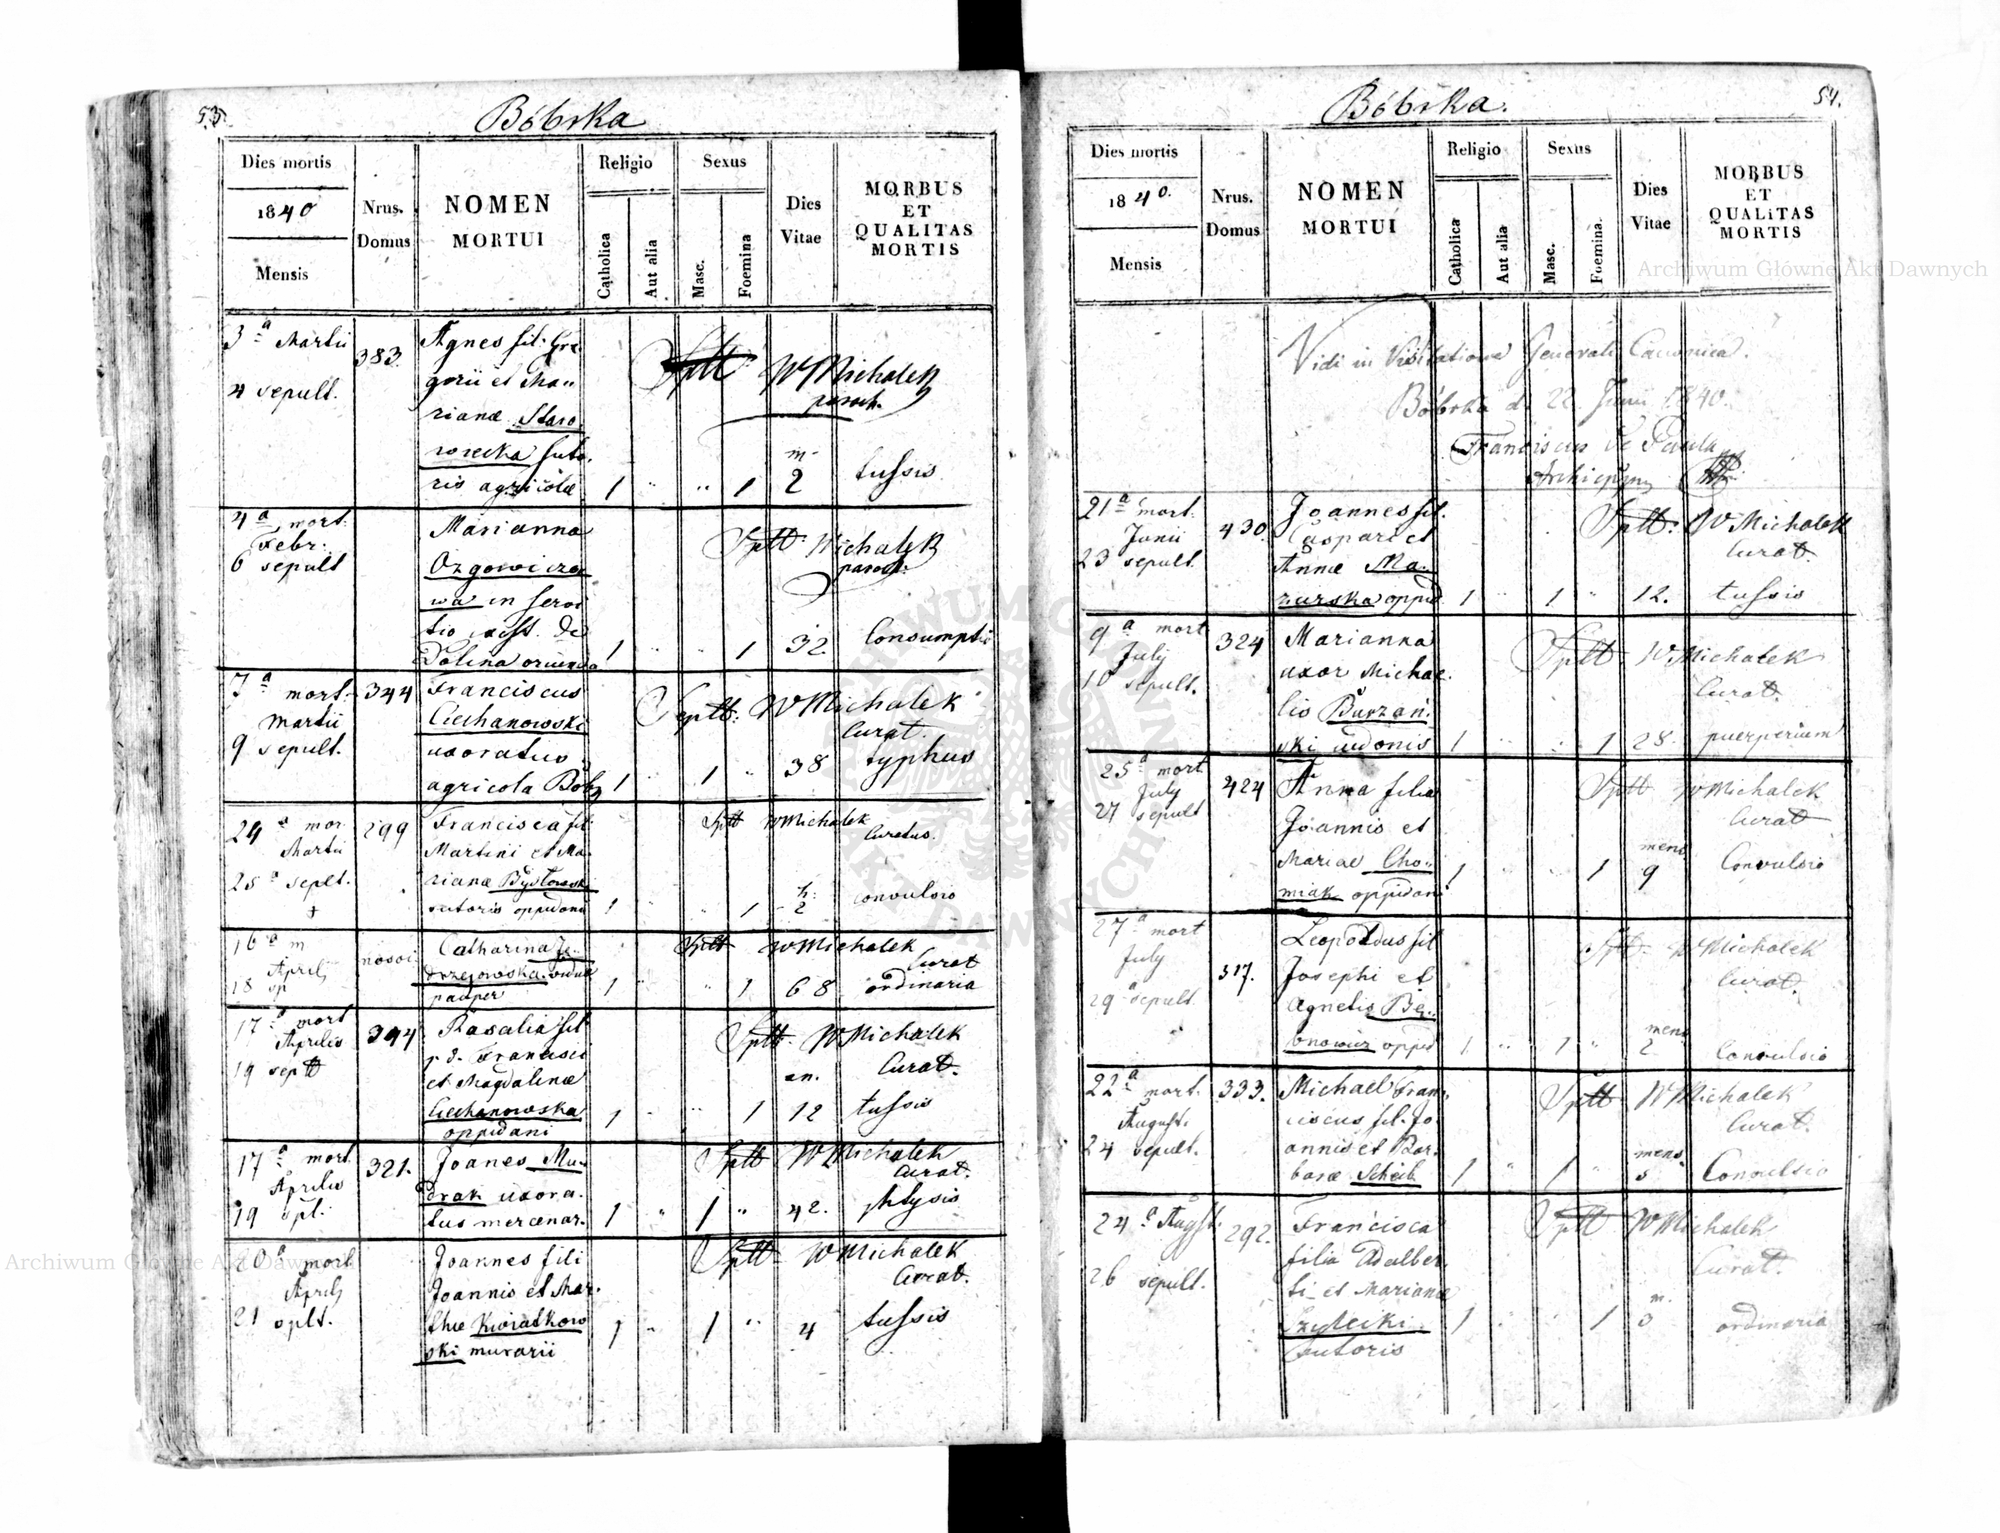 53.
Bóbrka
Dies mortis
1840
Mensis
Nrus.
Domus
NOMEN
MORTUI
Religio
Catholica
Aut alia
Sexus
Masc.
Foemina
Dies
Vitae
MORBUS
ET
QUALITAS
MORTIS
3a Martii
4 sepult.
383.
Agnes fil. Gre
gorii et Ma
rianæ Staro
wiecka suto
ris agricolæ
1 " " 1
m.
2
Sptt W Michalek
paroch.
tussis
4a mort.
Febr.
6 sepult
Marianna
Ozgowicz
wa in servi
tio exist. de
Dolina oriunda
1 " " 1 32
Sptt Michalek
paroch.
Consumptio
7a mort.
Martii
9 sepult.
344
Franciscus
Ciechanowski
uxoratus
agricola Bób
1 " 1 " 38
Septt: W Michalek
Curat.
typhus
24a mor
Martii
25a seplt.
+
299
Francisca fil
Martini et Ma
rianæ Bystrowski
sutoris oppidani
1 " 1
h.
2
Sptt W Michalek
Curatus.
convulsio
16a m
Aprilj
18 sp
nosoc
Catharina Ję
drzejowska vidua
pauper
1 " " 1 68
Sptt W Michalek
Curat
ordinaria
17a mort
Aprilis
19 septt
394
Rosalia fil
p. d. Francisci
et Magdalenæ
Ciechanowska
oppidani
1 " 1
an.
12
Sptt. W Michalek
Curat.
tussis
17a mort.
Aprilis
19 spt.
321.
Joanes Mu
drak uxora
tus mercenar.
1 " 1 " 42.
Sptt W Michalek
Curat.
phtysis
20a mort
Aprilj
21 splt.
Joannes fili
Joannis et Mar
thæ Kwiatkow
ski murarii
1 " 1 " 4
Sptt W Michalek
Curat.
tussis
54.
Bóbrka.
Dies mortis
1840.
Mensis
Nrus.
Domus
NOMEN
MORTUI
Religio
Catholica
Aut alia
Sexus
Masc.
Foemina.
Dies
Vitae
MORBUS
ET
QUALITAS
MORTIS
Vidi in Visitatione Generali Canonica.
Bóbrka d. 22. Junii 1840.
Franciscus de Paula
Archieppus
21a mort.
Junii
23 sepult.
430.
Joannes fil.
Caspari et
Annæ Ma
zurska oppid
1 1 " 12.
Sptt: W Michalek
Curat.
tussis
9a mort
July
10 sepult.
324
Marianna
uxor Michae
lis Burzań
ski
1 " " 1 28.
Sptt W Michalek
Curat.
puerperium
25a mort
July
27 sepult
424
Anna filia
Joannis et
Mariae Cho
miak oppidani
1 " " 1
mens
9
Sptt W Michalek
Curat
Convulsio
27a mort
July
29a sepult.
317.
Leopoldus fil
Josephi et
Agnetis Be
onowicz oppid
1 " 1 "
mens
2
Sptt W Michalek
Curat.
Convulsio
22a mort.
August.
24 sepult.
333.
Michael Fran
ciscus fil. Jo
annis et Bar
baræ Scheib
1 " 1 "
mens.
5
Sptt W Michalek
Curat.
Convulsio
24a Augst:
26 sepult.
292.
Francisca
filia Adalber
ti et Marianæ
sutoris
1 " " 1
m.
3
Sptt W Michalek
Curat.
ordinaria
Archiwum Główne Akt Dawnych
Archiwum Główne Akt Dawnych
ARCHIWUM GŁÓWNE AKT DAWNYCH